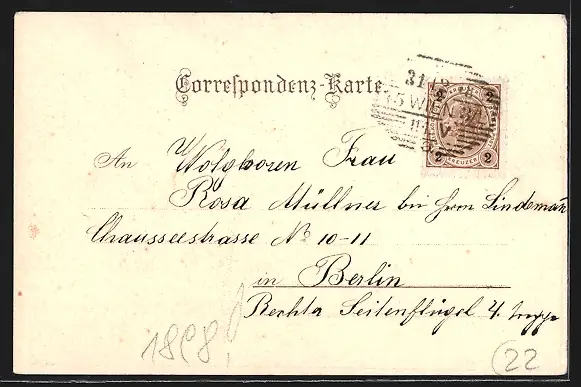 Correspondenz-Karte
31 12
WIEN
2 2
KREUZER
2 2
An Wolgboren Frau
Rósa Müllner bei Herrn Lindeman
Chausseestrasse No 10-11
in Berlin
Rechta Seitenflügel 4. treppe
1898!
22